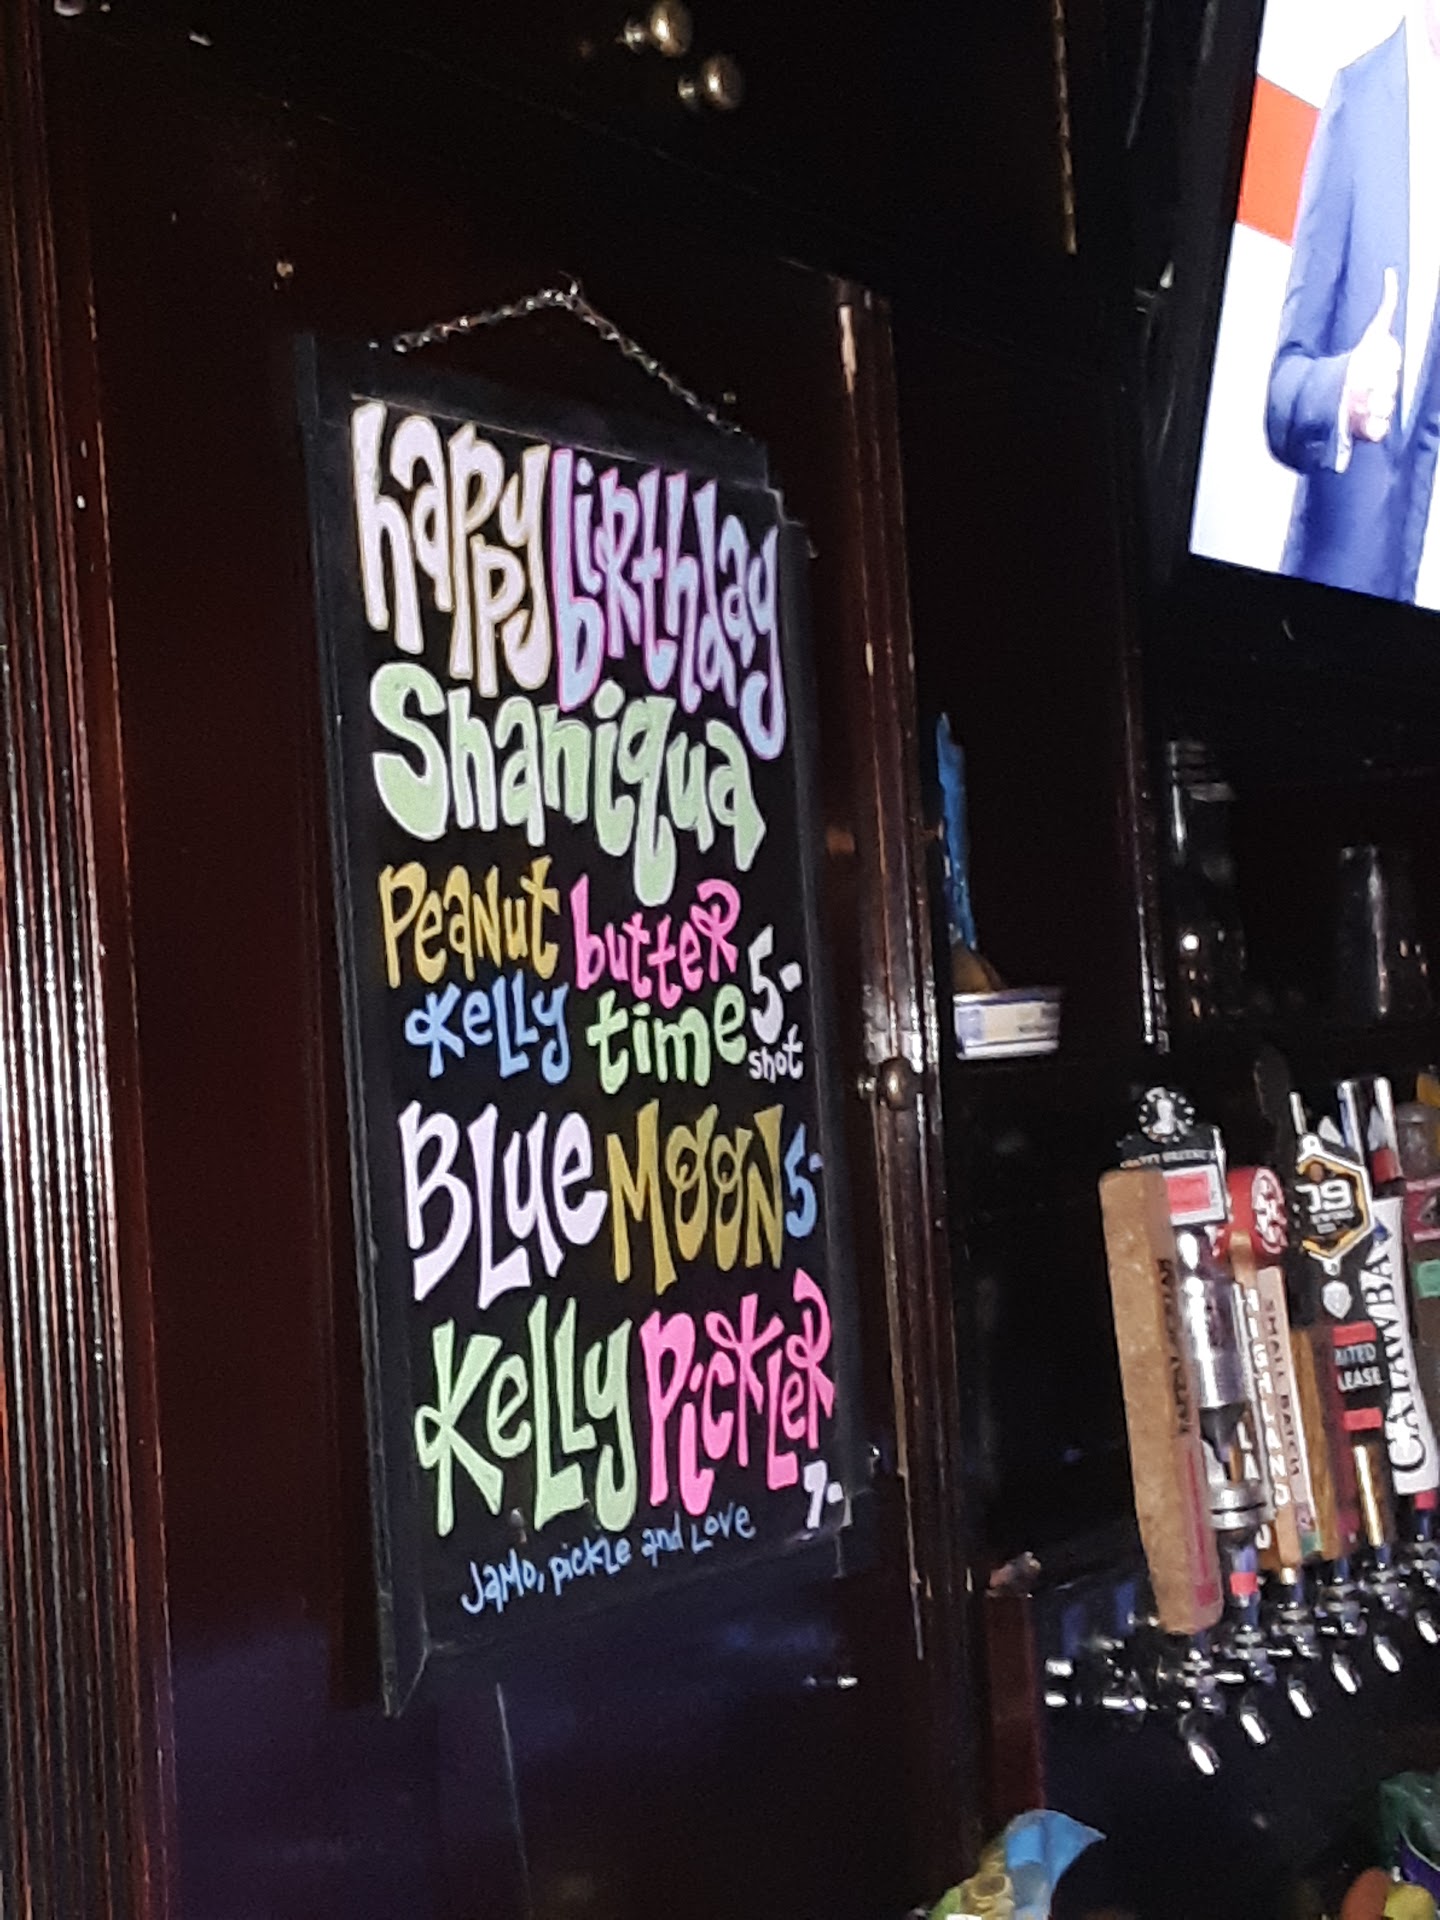 happy birthday
Shaniqua
Peanut butter
Kelly time 5-
shot
BLue MOON 5-
Kelly PickLeR
7-
Jamo, pickle and Love
19
CATAWBA